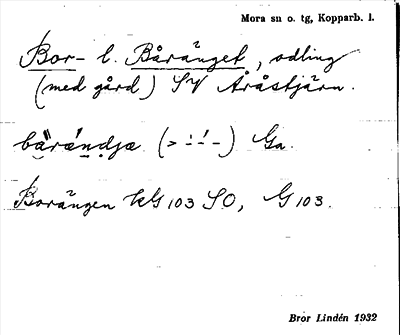 Mora sn o. tg, Kopparb. l.
Bor- l. Båränget, odling
(med gård) SV Åråstjärn.
Ga.
Borängen kG 103 SO, G 103.
Bror Lindén 1932